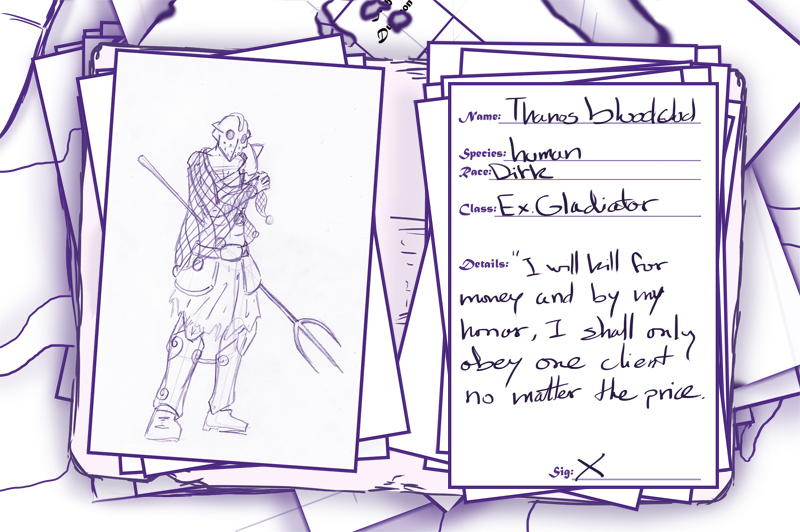 Name: Thanos bloodclud
Species: human
Race: Dirk
Class: Ex. Gladiator
Details: "I will kill for
money and by my
honor, I shall only
obey one client
no matter the price.
Sig: X